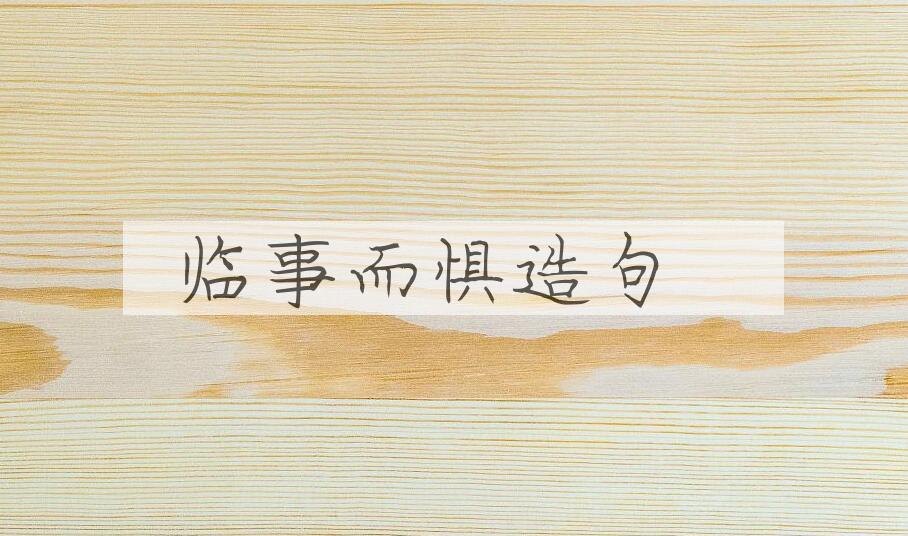 临事而惧造句